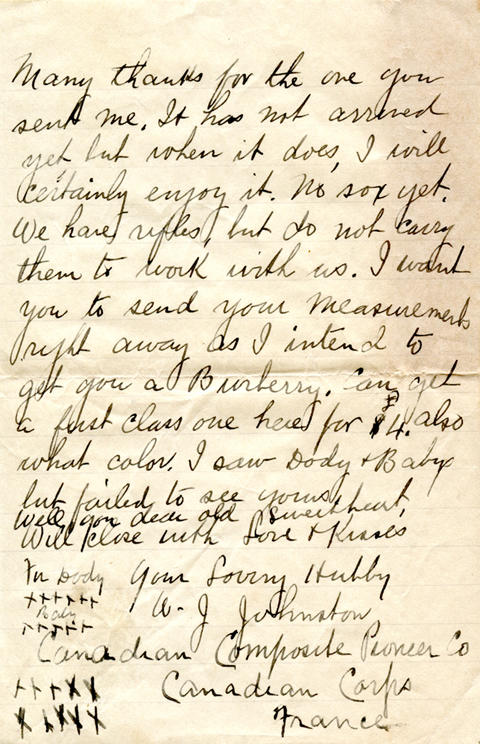 Many thanks for the one you
sent me. It has not arrived
yet but when it does, I will
certainly enjoy it. No sox yet.
We have rifles, but do not carry
them to work with us. I want
you to send your measurements
right away as I intend to
get you a Burberry. Can get
a first class one here for £4. also
what color. I saw Dody + Baby
but failed to see yours
Well you dear old Sweetheart,
Will close with Love + Kisses
For Dody Your Loving Hubby
++++++
Baby W. J. Johnston
+++++
Canadian Composite Pioneer Co
+++XX Canadian Corps
XXXXX France